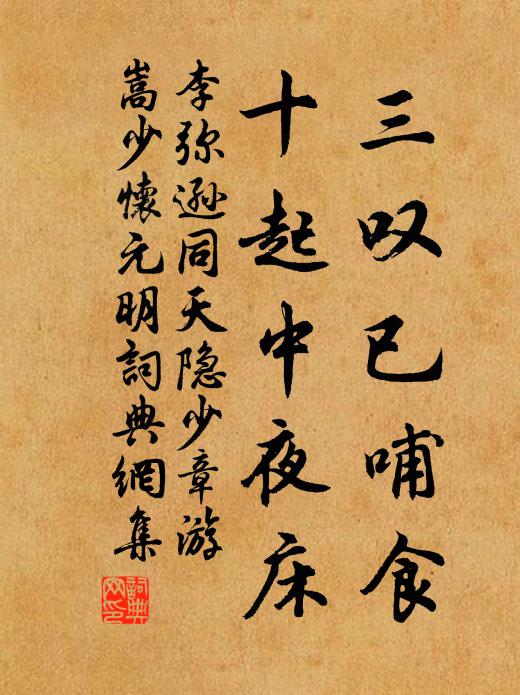 三叹已哺食
十起中夜床
李弥逊同天隐少章游
嵩少懷元明詞典網集
詞典
网印